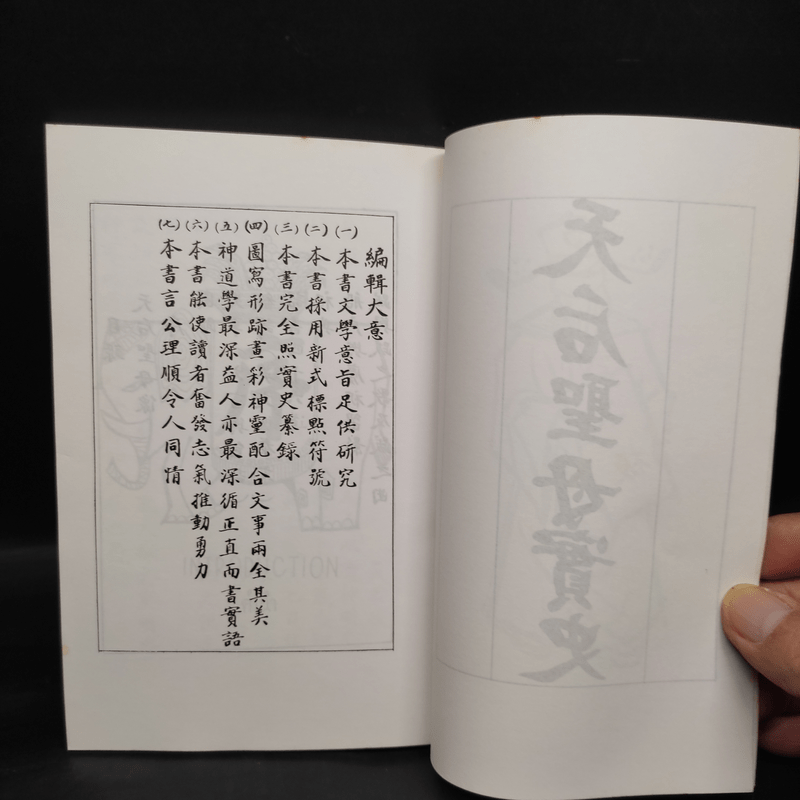 編輯大意
(一)本書文學意旨足供研究
(二)本書採用新式標點符號
(三)本書完全照實史纂錄
(四)圖寫形跡畫彩神靈配合文事兩全其美
(五)神道學最深益人亦最深循正直而書實語
(六)本書能使讀者奮發志氣推動勇力
(七)本書言公理順令人同情
天后聖母實史